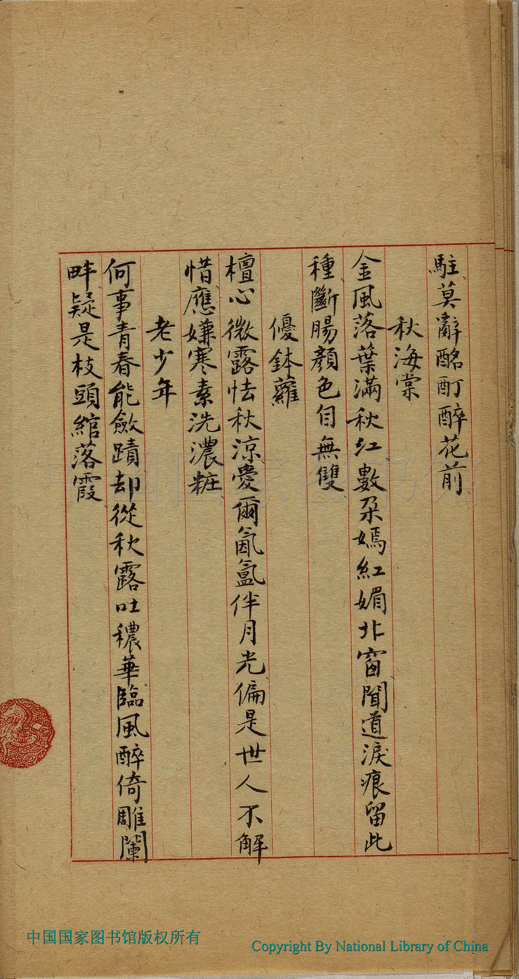 駐莫辭酩酊醉花前
秋海棠
金風落葉滿秋江數朶嫣紅媚北窗聞道淚痕留此
種斷腸顏色自無雙
優鉢蘿
檀心微露怯秋涼愛爾氤氳伴月光偏是世人不解
惜應嫌寒素洗濃粧
老少年
何事青春能斂蹟却從秋露吐穠華臨風醉倚雕闌
畔疑是枝頭綰落霞
中国国家图书馆版权所有
Copyright By National Library of China